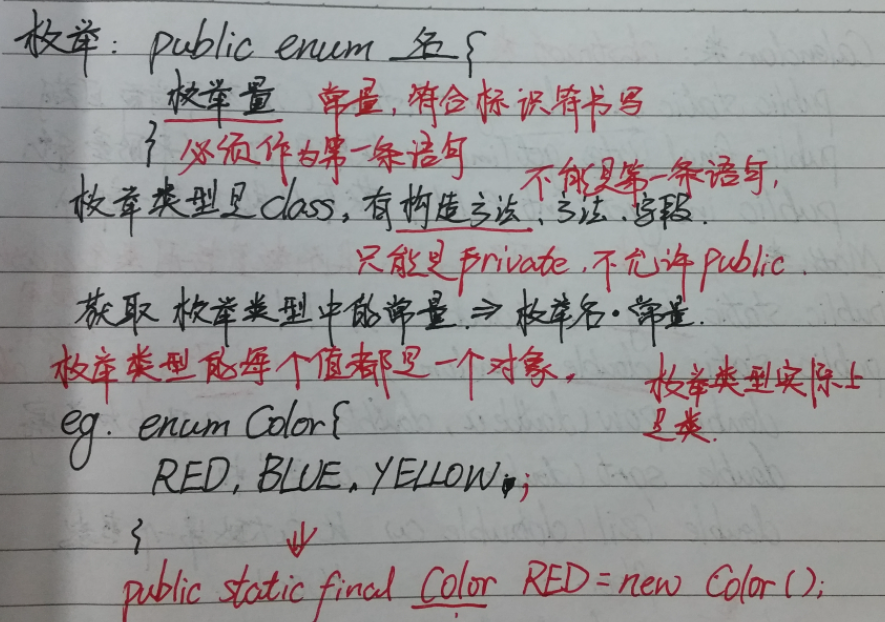 枚举: public enum 名{
枚举量 常量,符合标识符书写
} 必须作为第一条语句
不能是第一条语句,
枚举类型是class,有构造方法、方法、字段.
只能是private,不允许public.
获取枚举类型中的常量 ⇒ 枚举名·常量.
枚举类型的每个值都是一个对象,
枚举类型实际上
是类.
eg. enum Color{
RED, BLUE, YELLOW;
}
↓
public static final Color RED = new Color();